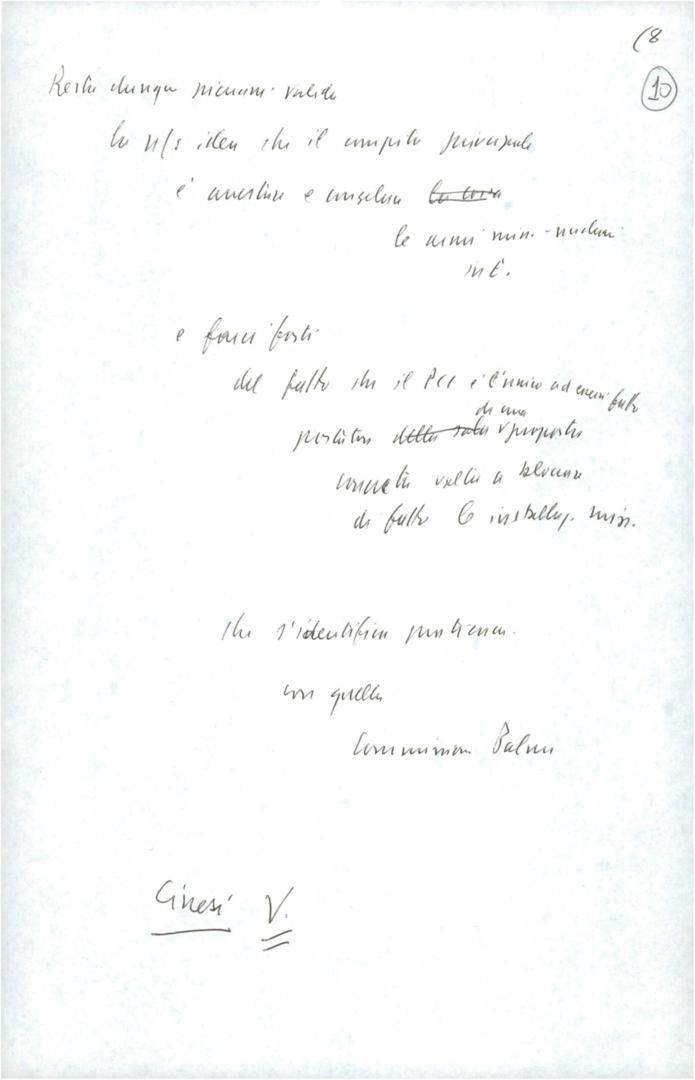 (8
10
Resta dunque pienam. valida
la n/s idea che il compito principale
è arrestare e congelare la corsa
le armi miss.-nucleari
in E.
e farci forti
del fatto che il PCI è l'unico ad essersi fatto
di una
portatore della sola proposta
concreta volta a bloccare
di fatto le installaz. miss.
che s'identifica praticam.
con quella
Commissione Palme
Cinesi V.